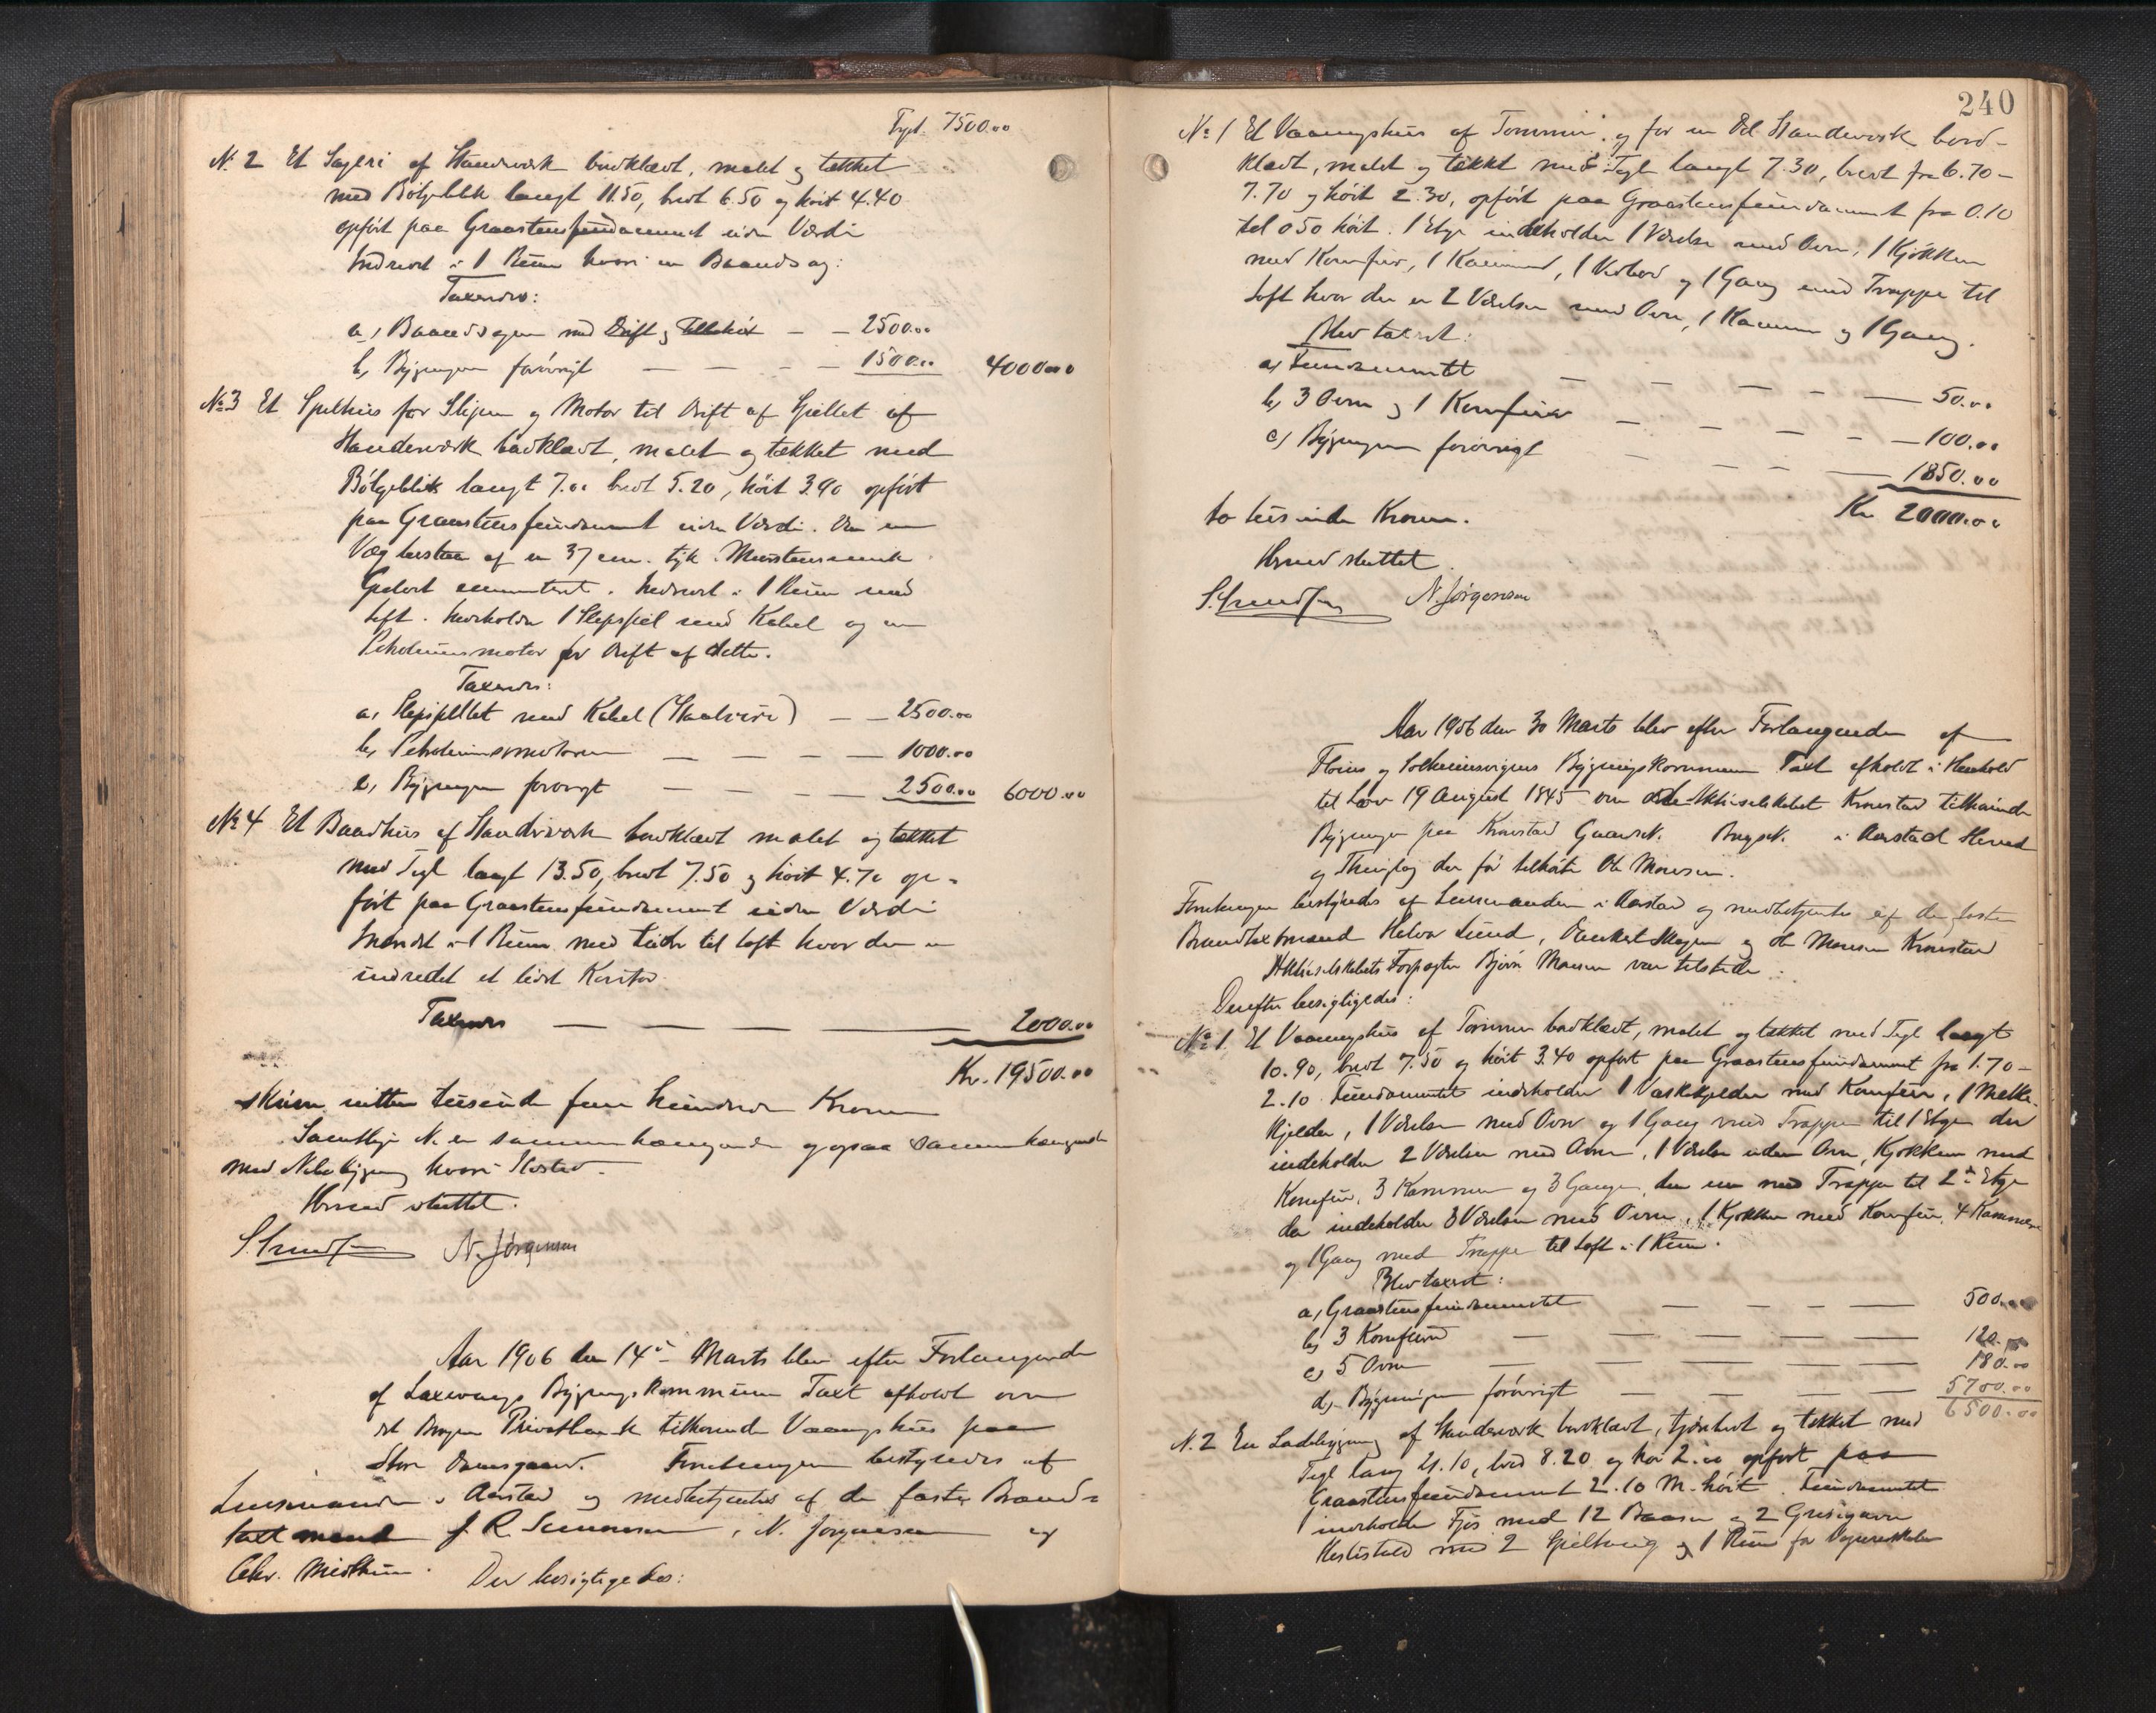 Trpt. 7500.00
No. 2 Et Sageri af Standerværk bordklædt, malet og tækket
med Bølgeblik langt 11.50, bredt 6.50 og høit 4.40
opført paa Graastensfundament uden Værdi
Indredet i 1 Rum hvori en Baandsag:
Taxeredes:
a, Baandsagen med Drift og Tilbehør — — 2500.00
b, Bygningen forøvrigt — — — — 1500.00 4000.00
No. 3 Et Spilhus for Slippen og Motor til Drift af Spillet af
Standerværk bordklædt, malet og tækket med
Bølgeblik langt 7.00 bredt 5.20, høit 3.90 opført
paa Graastensfundament uden Værdi. Den ene
Væg bestaar af en 37 cm. tyk Murstensmur
Gulvet cementeret. Indredet i 1 Rum med
Loft. Indeholder 1 Slipspil med Kabel og en
Petroleumsmotor for Drift af dette.
Taxeredes:
a, Slipspillet med Kabel (Staalwire) — — 2500.00
b, Petroleumsmotoren — — — — 1000.00
c, Bygningen forøvrigt — — — — 2500.00 6000.00
No. 4 Et Baadhus af Standerværk bordklædt malet og tækket
med Tegl langt 13.50, bredt 7.50 og høit 4.70 op-
ført paa Graastensfundament uden Værdi
Indredet i 1 Rum med Leider til Loft hvor der er
indredet et lidet Kontor.
Taxeredes — — — — 2000.00
Kr. 19500.00
skriver nitten tusinde fem hundrede Kroner
Samtlige No. er sammenhængende og ogsaa sammenhængende
med Nabobygning hvori Ildsted.
Hermed sluttet.
N. Jørgensen
Aar 1906 den 14de Marts blev efter Forlangende
af Laxevaags Bygningskommune Taxt afholdt over
det Bergens Privatbank tilhørende Vaaningshus paa
Store Damsgaard. Forretningen bestyredes af
Lensmanden i Aarstad og medbetjentes af de faste Brand-
taxtmænd J. R. Simonsen, N. Jørgensen og
Chr. Midthun. Der besigtigedes:
240
No. 1 Et Vaaningshus af Tømmer og for en Del Standerværk bord-
klædt, malet og tækket med Tegl langt 7.30, bredt fra 6.70 –
7.70 og høit 2.30, opført paa Graastensfundament fra 0.10
til 0.50 høit. 1 Etage indeholder 1 Værelse med Ovn, 1 Kjøkken
med Komfur, 1 Kammer, 1 Vedbod og 1 Gang med Trappe til
Loft hvor der er 2 Værelser med Ovn, 1 Kammer og 1 Gang.
Blev taxeret:
a, Fundamentet — — — — 50.00
b, 3 Ovne og 1 Komfur — — — — 100.00
c, Bygningen forøvrigt — — — — 1850.00
Kr 2000.00
to tusinde Kroner.
Hermed sluttet.
N. Jørgensen
Aar 1906 den 30 Marts blev efter Forlangende af
Florims og Solheimsvigens Bygningskommune Taxt afholdt i Henhold
til Lov 19 August 1845 over de Aktieselskabet Kronstad tilhørende
Bygninger paa Kronstad Gaards No. Brugs No. i Aarstad Herred
og Thinglag der før tilhørte Ole Monsen.
Forretningen bestyredes af Lensmanden i Aarstad og medbetjentes af de faste
Brandtaxtmænd Halvor Lund, Skagen og Ole Monsen Kronstad
Aktieselskabets Forpagter Bjørn Monsen var tilstede.
Derefter besigtigedes:
No. 1 Et Vaaningshus af Tømmer bordklædt, malet og tækket med Tegl langt
10.90, bredt 7.50 og høit 3.40 opført paa Graastensfundament fra 1.70 –
2.10. Fundamentet indeholder 1 Vaskekjelder med Komfur, 1 Melke-
kjelder, 1 Værelse med Ovn og 1 Gang med Trappe til 1 Etage der
indeholder 2 Værelser med Ovne, 1 Værelse uden Ovn, Kjøkken med
Komfur, 3 Kammere og 3 Gange, den ene med Trappe til 2den Etage
der indeholder 3 Værelser med Ovne, 1 Kjøkken med Komfur, 4 Kammere
og 1 Gang med Trappe til Loft i 1 Rum.
Blev taxeret:
a, Graastensfundamentet — — — — 500.00
b, 3 Komfurer — — — — 120.00
c, 5 Ovne — — — — 180.00
d, Bygningen forøvrigt — — — — 5700.00
6500.00
No. 2 En Ladebygning af Standerværk bordklædt, tjærebredt og tækket med
Tegl lang 21.10, bred 8.20 og høi 2.00 opført paa
Graastensfundament 2.10 M. høit. Fundamentet
indeholder Fjøs med 12 Baaser og 2 Grisegarer
Hestestald med 2 Spiltoug og 1 Rum for